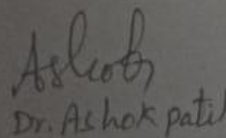 Ashok
Dr. Ashok patil